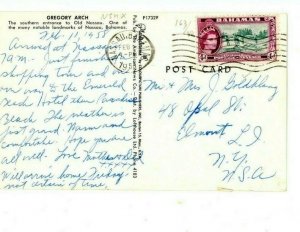 GREGORY ARCH
The southern entrance to Old Nassau. One of the many notable landmarks of Nassau, Bahamas.
P17329
Feb - 1, 1958
Arrived at Nassau
9 A.M - Just finished
shopping tour and
our way to the Emerald
Beach Hotel then Paradise
Beach. The weather is
just grand. Warm and
comfortable. Hope you're
all well. Love Mother
Will arrive home Friday
not certain of time.
POST CARD
BAHAMAS
NASSAU
FEB
195
Mr & Mrs J. Goldberg
48 Opal St
Elmont L.I
N.Y.
U.S.A